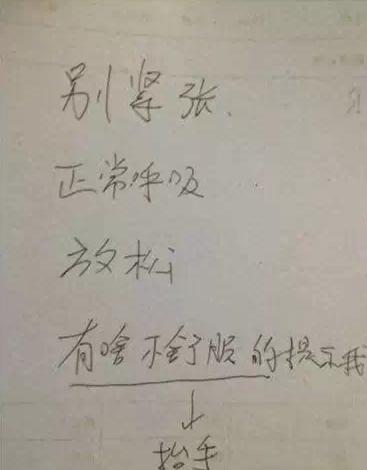 别紧张.
正常呼吸
放松
有啥不舒服的提示我
↓
抬手